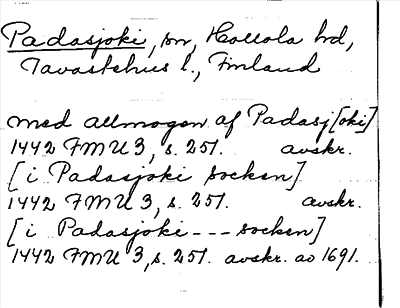 Padasjoki, sn, Hollola hd,
Tavastehus l., Finland
med allmogen af Padasj[oki]
1442 FMU 3, s. 251. avskr.
[i Padasjoki socken]
1442 FMU 3, s. 251. avskr.
[i Padasjoki --- socken]
1442 FMU 3, s. 251. avskr. ao 1691.